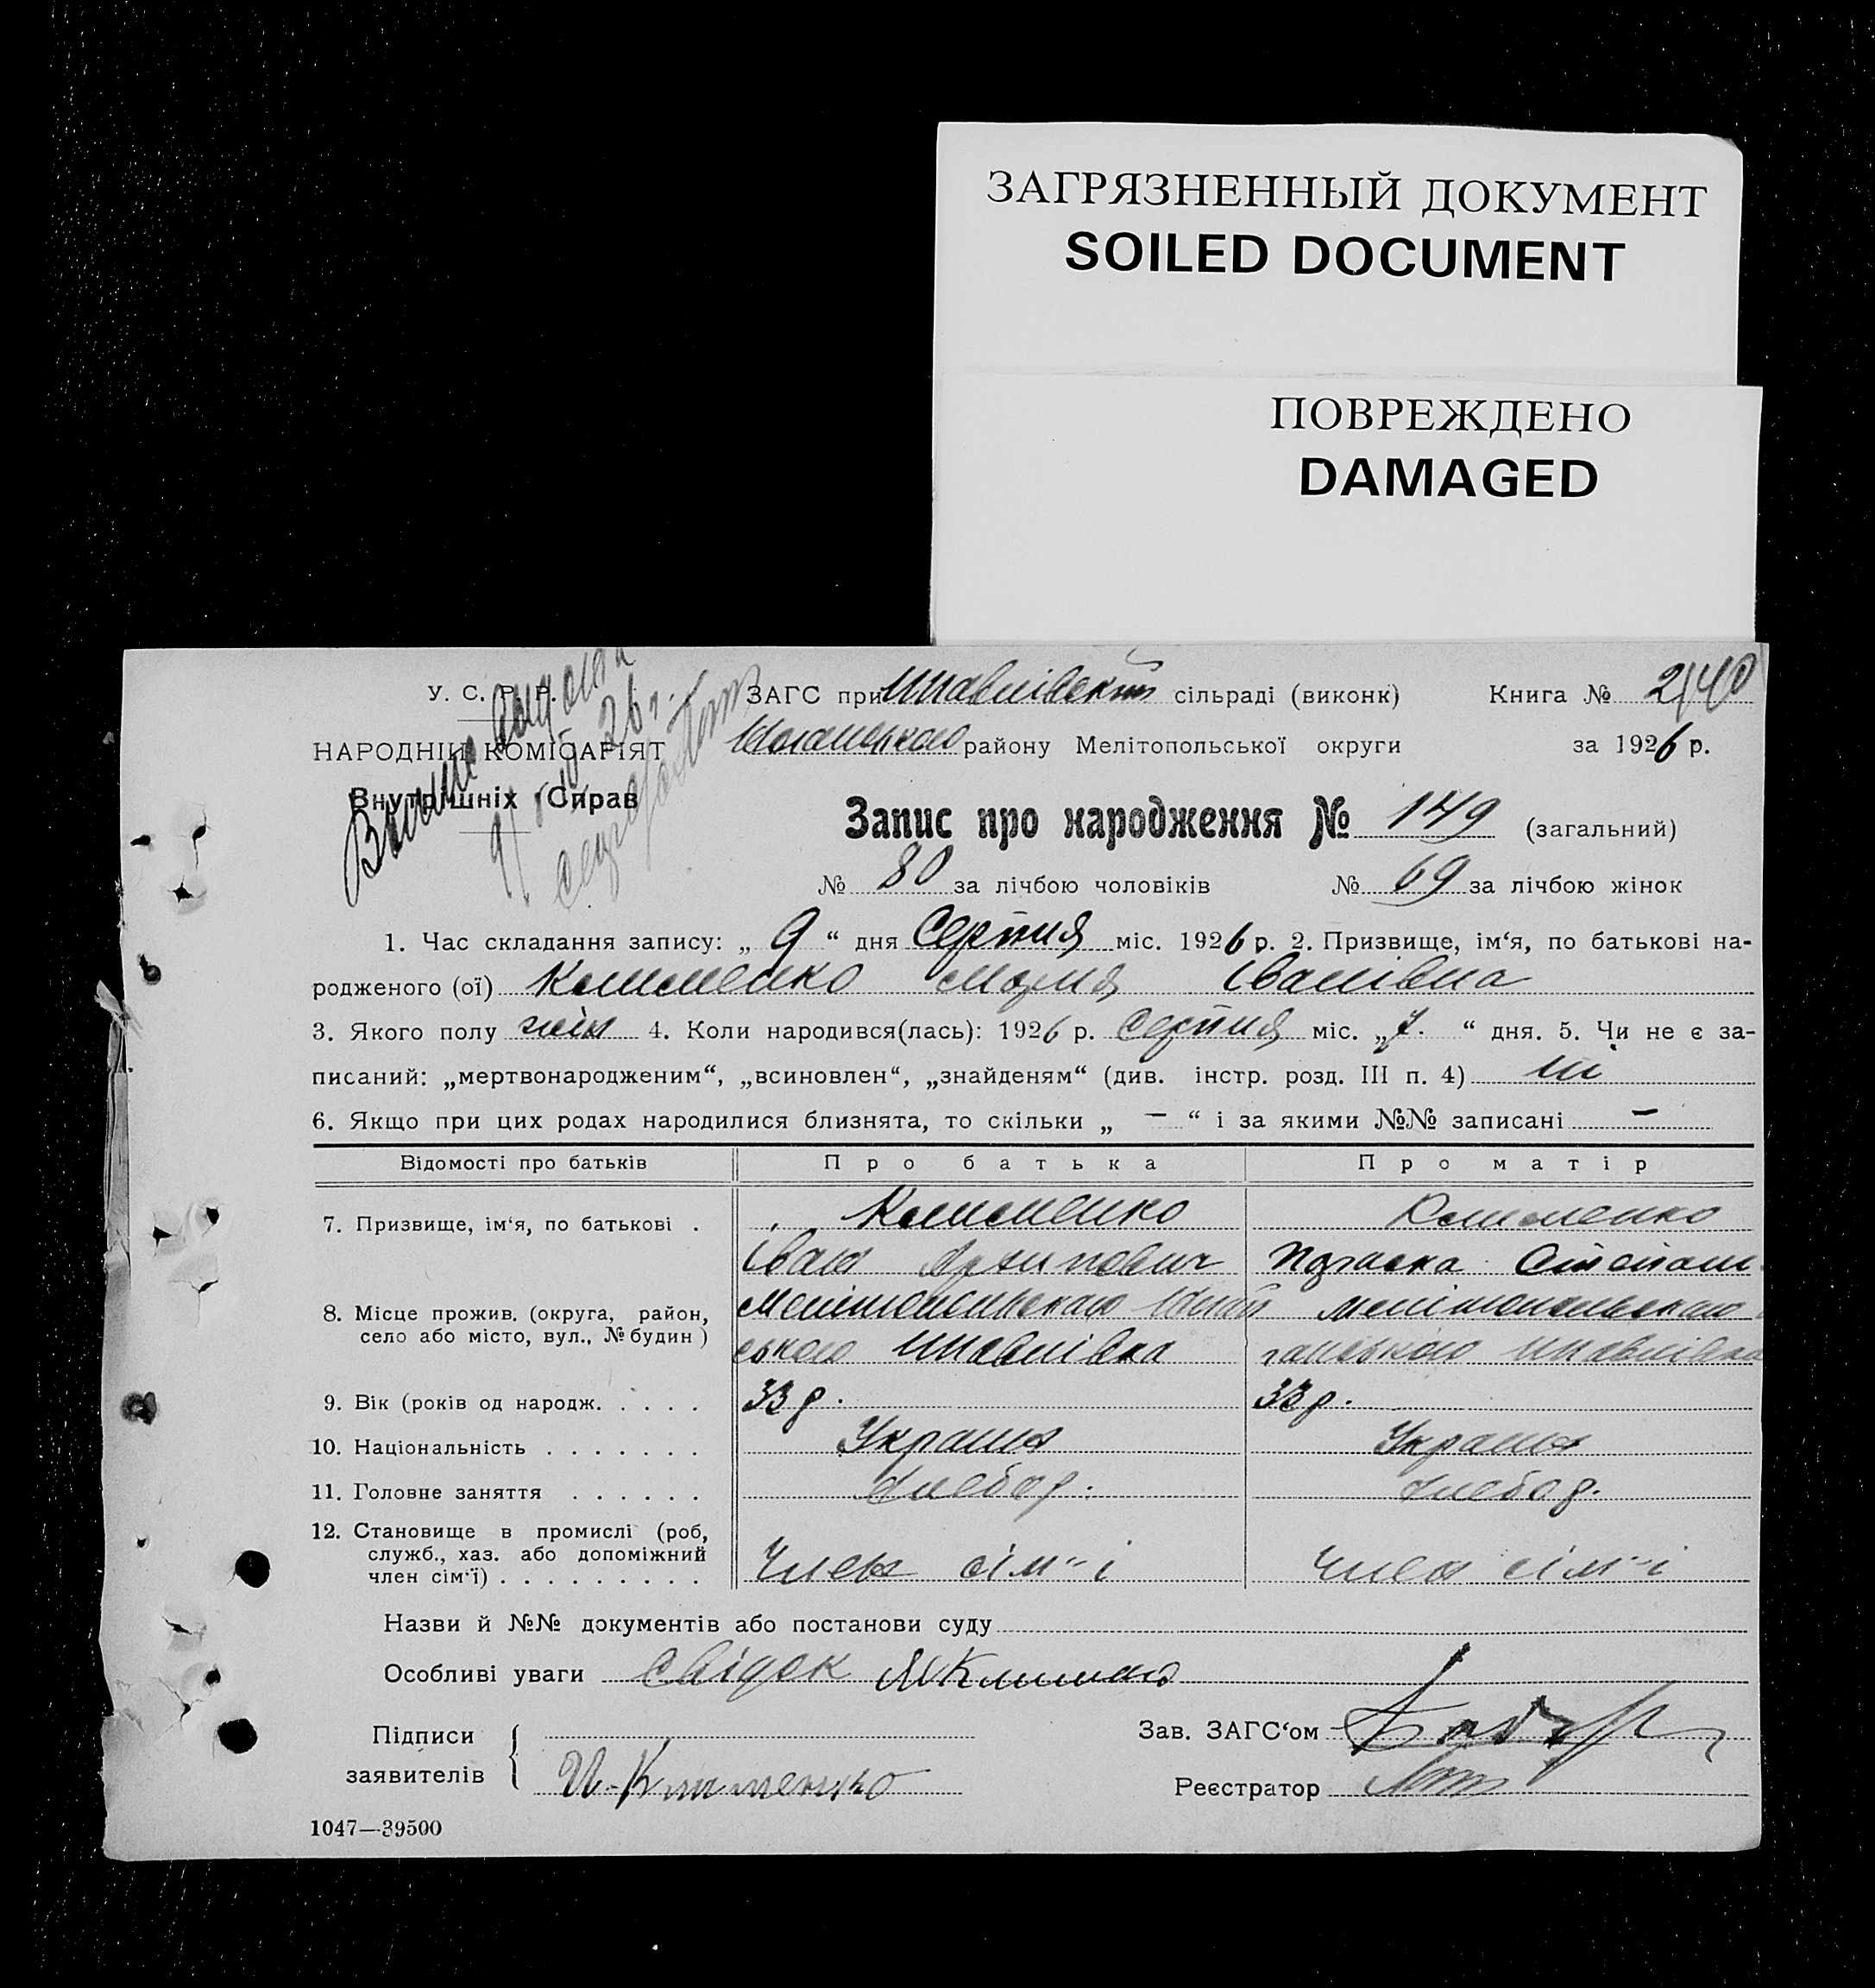 ЗАГРЯЗНЕННЫЙ ДОКУМЕНТ
SOILED DOCUMENT
ПОВРЕЖДЕНО
DAMAGED
У. С. Р. Р. ЗАГС при сільраді (виконк) Книга №
НАРОДНІЙ КОМІСАРІЯТ району Мелітопольської округи за 1926 р.
Внутрішніх Справ
Запис про народження № 149 (загальний)
№ 80 за лічбою чоловіків № 69 за лічбою жінок
1. Час складання запису: „ 9 “ дня Серпня міс. 1926 р. 2. Призвище, ім‘я, по батькові на-
родженого (ої) Клименко Марія Іванівна
3. Якого полу жін 4. Коли народився(лась): 1926 р. Серпня міс. „7. “ дня. 5. Чи не є за-
писаний: „мертвонародженим“, „всиновлен“, „знайденям“ (див. інстр. розд. III п. 4) ні
6. Якщо при цих родах народилися близнята, то скільки „ — “ і за якими №№ записані —
Відомості про батьків Про батька Про матір
7. Призвище, ім‘я, по батькові . Клименко Клименко
Іван Архипович Степан
8. Місце прожив. (округа, район, Мелітопольського Мелітопольського
село або місто, вул., № будин)
9. Вік (років од народж. . . . . 33 р. 33 р.
10. Національність . . . . . . . Україн Україн
11. Головне заняття . . . . . . Хлебор. Хлебор.
12. Становище в промислі (роб,
служб., хаз. або допоміжний
член сім‘ї) . . . . . . . . . Член сім“і Член сім“і
Назви й №№ документів або постанови суду
Особливі уваги Свідок
Підписи Зав. ЗАГС‘ом
заявителів И. Клименко Реєстратор
1047—39500